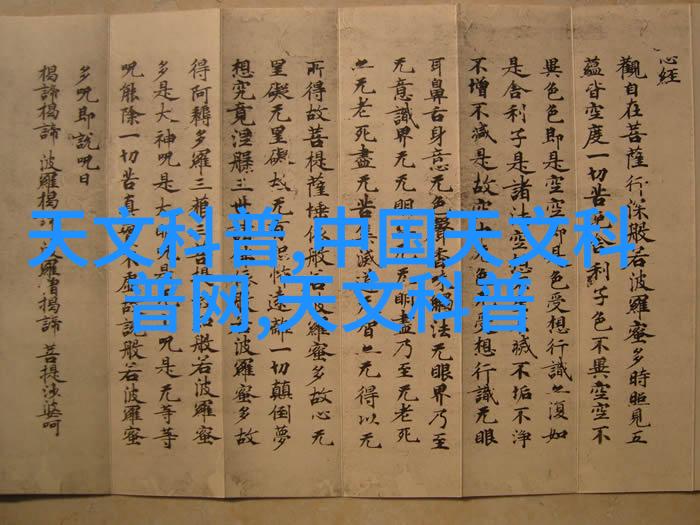 心経
觀自在菩薩行深般若波羅蜜多時照見五
蘊皆空度一切苦利子色不異空空不
異色色即是空空即是色受想行識亦復如
是舍利子是諸法空滅不垢不淨
不增不減是故空色受想行識无眼
耳鼻舌身意无色聲香味觸法无眼界乃至
无意識界无无明无明盡乃至无老死
亦无老死盡无苦集滅道智亦无得以无
所得故菩提薩埵依般若波羅蜜多故心无
罣礙无罣礙故无恐怖遠離一切顛倒夢
想究竟涅槃三世依般若波羅蜜多故
得阿耨多羅三藐三菩提般若波羅蜜
多是大神呪是大明呪是呪是无等等
呪能除一切苦真不虛故說般若波羅蜜
多呪即說呪曰
揭諦揭諦 波羅揭諦 波羅僧揭諦 菩提莎婆呵
天文科普,中国天文科
普网,天文科普